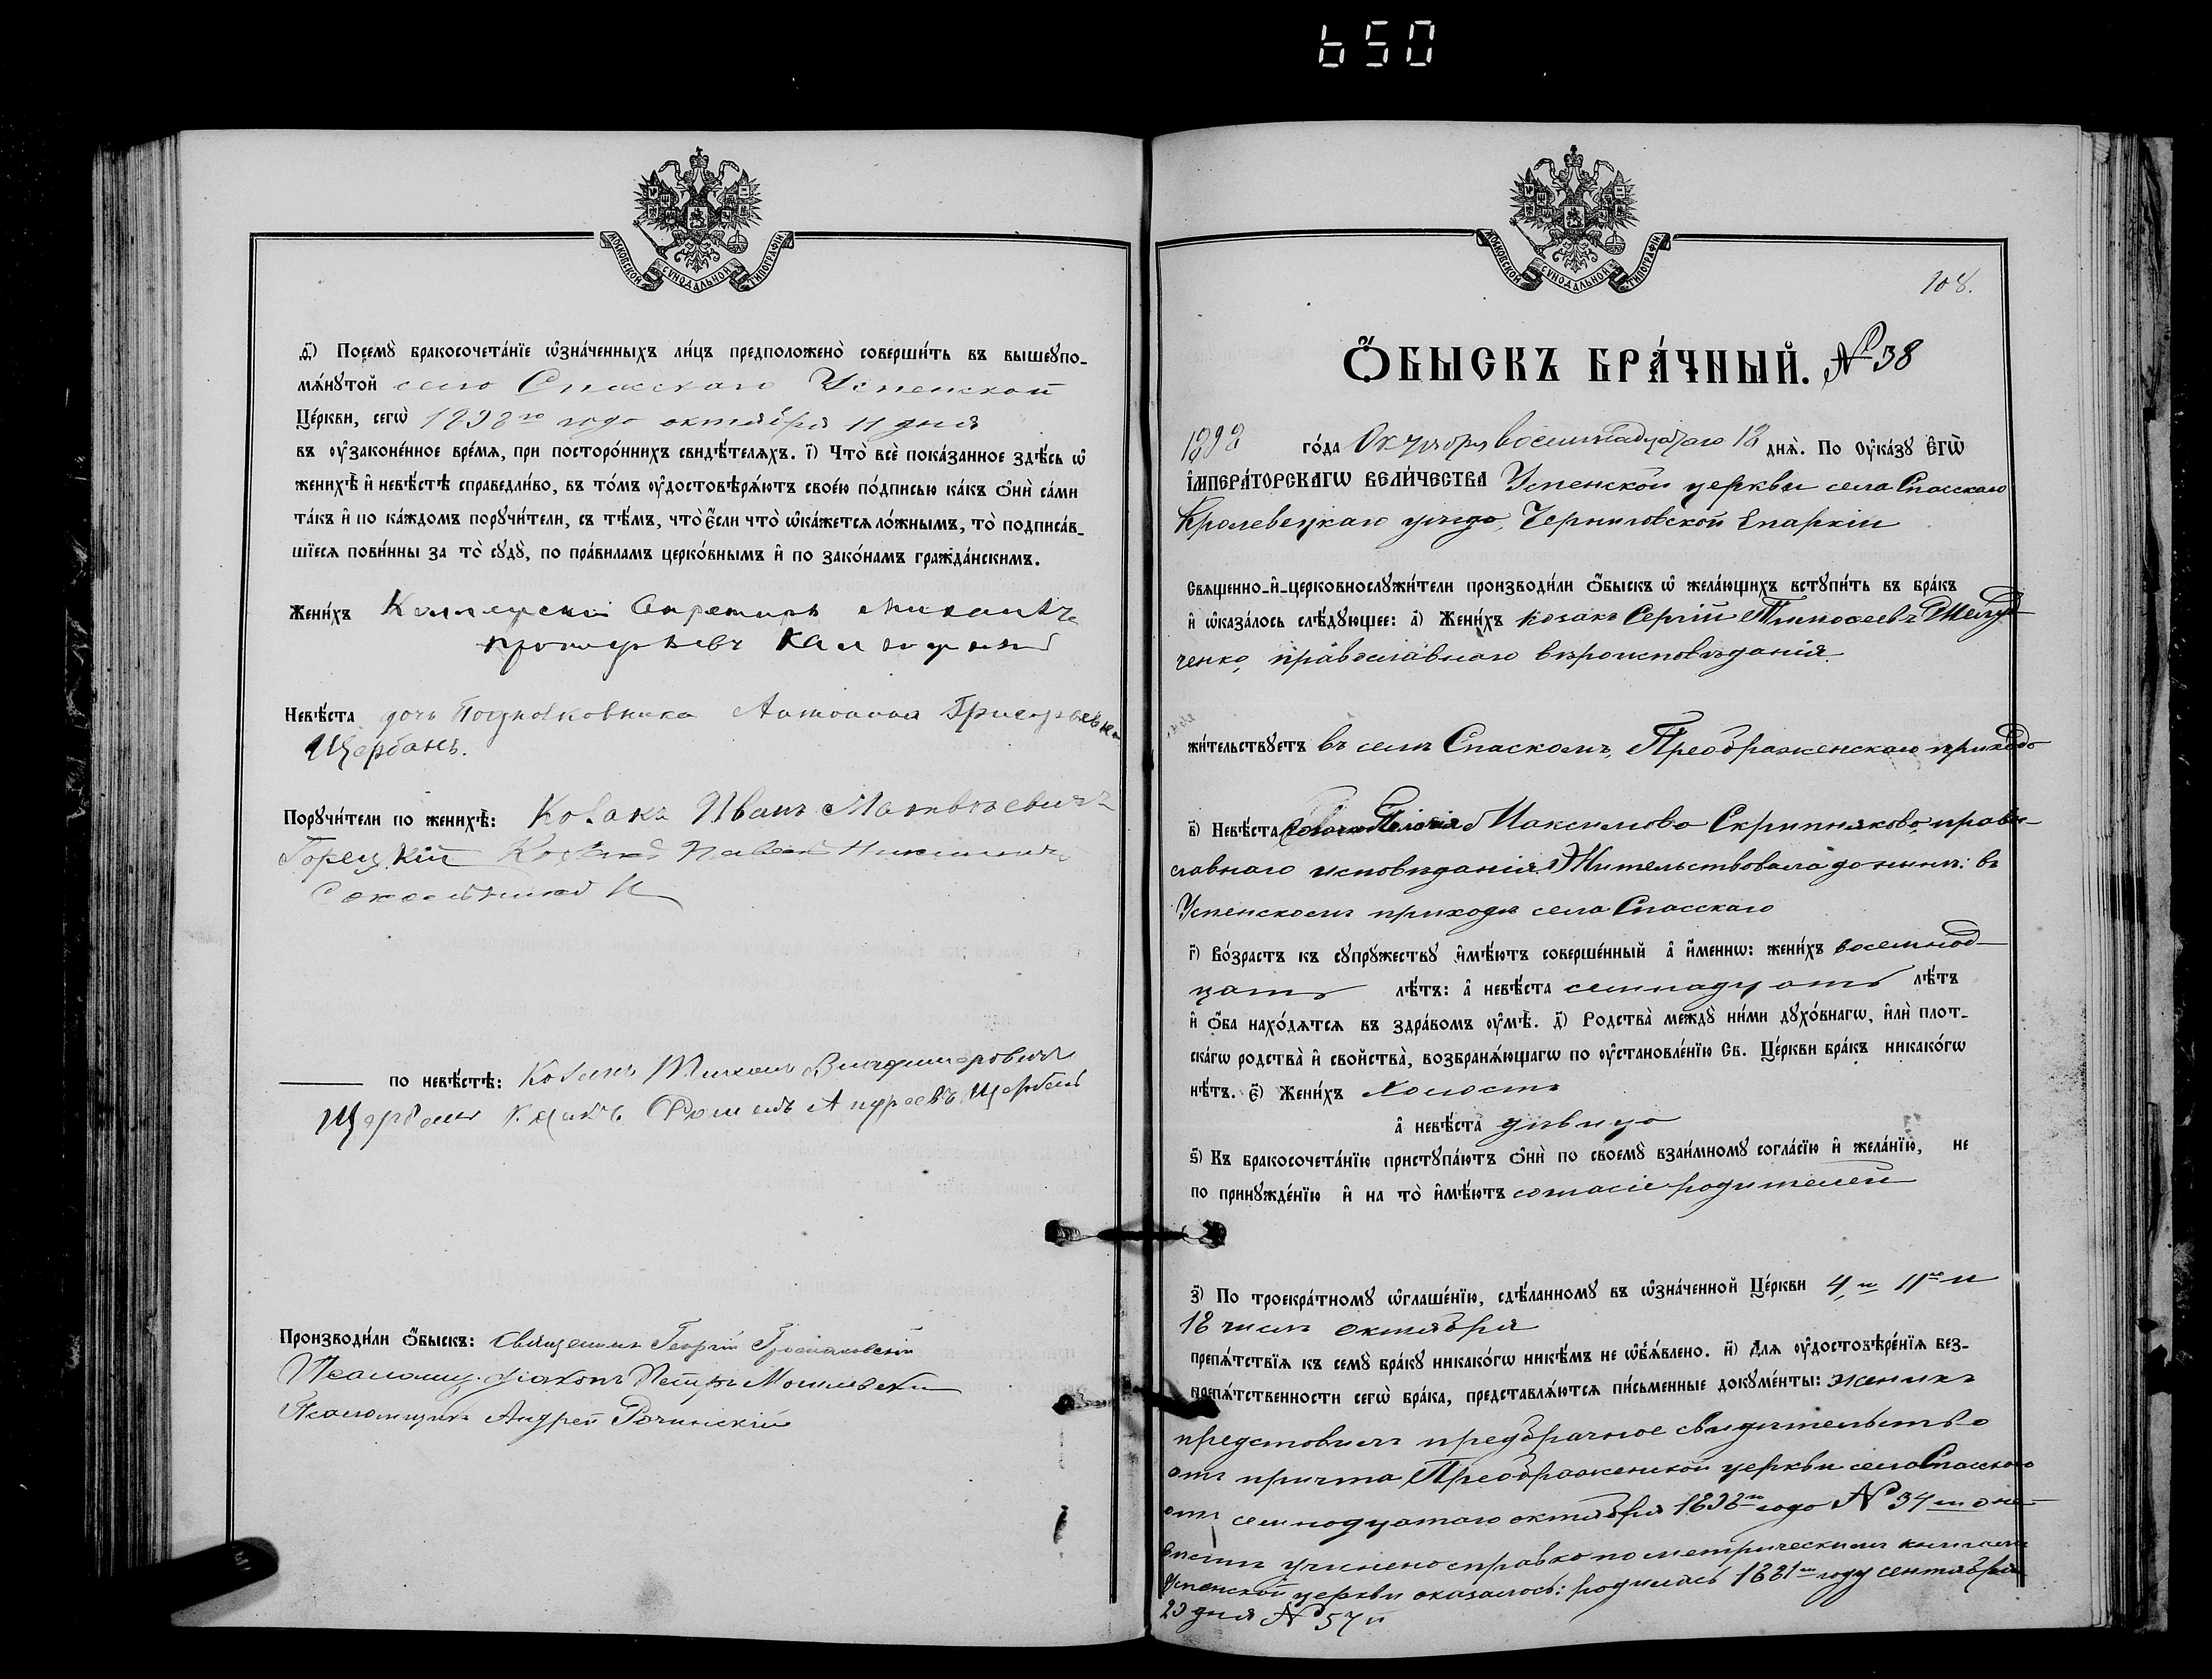 650
МОСКОВСКОЙ СѴНОДАЛЬНОЙ ТИПОГРАФІИ
ѳ҃) Посемꙋ̀ бракосочета́нїе ѡ҆зна́ченныхъ ли́цъ предположено̀ соверши́ть въ вышеꙋпо-
мѧ́нꙋтой село Спасскаго Успенской
Це́ркви, сегѡ̀ 1898го года октября 11 дня
въ ᲂу҆законе́нное вре́мѧ, при посторо́ннихъ свидѣ́телѧхъ. і҃) Что̀ всѐ пока́занное здѣ́сь ѡ҆
женихѣ̀ и҆ невѣ́стѣ справедли́во, въ то́мъ ᲂу҆достовѣрѧ́ютъ свое́ю по́дписью ка́къ ѻ҆нѝ са́ми
та́къ и҆ по ка́ждомъ порꙋчи́тели, съ тѣ́мъ, что̀ є҆́сли что̀ ѡ҆ка́жетсѧ ло́жнымъ, то̀ подписа́в-
шїесѧ пови́нны за то̀ сꙋдꙋ̀, по пра́виламъ церко́внымъ и҆ по зако́намъ гражда́нскимъ.
Жени́хъ Коллежскій Секретарь Михаилъ
Невѣ́ста дочь Подполковника Антонина Григорьевна
Щербань.
Порꙋчи́тели по женихѣ̀: Козакъ Иванъ Матвѣевичъ
Горецкій Козакъ Павелъ
по невѣ́стѣ: Козакъ Михаилъ Владимировичъ
Щербань Козакъ Романъ Андреевъ Щербань
Производи́ли ѻ҆́быскъ: Священникъ Георгій
Псаломщ. діаконъ Петръ Могилевскій
Псаломщикъ Андрей Рачинскій
МОСКОВСКОЙ СѴНОДАЛЬНОЙ ТИПОГРАФІИ
108.
Ѻ҆́БЫСКЪ БРА́ЧНЫЙ. № 38
1898 го́да Октября восемнадцатаго 18 днѧ̀. По ᲂу҆ка́зꙋ є҆гѡ̀
і҆мпера́торскагѡ вели́чества Успенской церкви села Спасскаго
Кролевецкаго уѣзда, Черниговской Епархіи
Свѧщенно-и҆-церковнослꙋжи́тели производи́ли ѻ҆́быскъ ѡ҆ жела́ющихъ встꙋпи́ть въ бра́къ
и҆ ѡ҆каза́лось слѣ́дꙋющее: а҃) Жени́хъ козакъ Сергій Тимофеевъ Шелуд
ченко, православнаго вѣроисповѣданія.
жи́тельствꙋетъ въ селѣ Спаскомъ, Преображенскаго прихода
в҃) Невѣ́ста Пелагія Максимова Скрипнякова, право
славнаго исповѣданія. Жительствовала до нынѣ: въ
Успенскомъ приходѣ села Спасскаго
г҃) Во́зрастъ къ сꙋпрꙋ́жествꙋ и҆мѣ́ютъ соверше́нный а҆ и҆́меннѡ: жени́хъ восемнад-
цать лѣ́тъ: а҆ невѣ́ста семнадцать лѣ́тъ
и҆ ѻ҆́ба нахо́дѧтсѧ въ здра́вомъ ᲂу҆мѣ̀. д҃) Родства̀ междꙋ̀ ни́ми дꙋхо́внагѡ, и҆лѝ плот-
ска́гѡ родства̀ и҆ свойства̀, возбранѧ́ющагѡ по ᲂу҆становле́нїю Св. Це́ркви бра́къ никако́гѡ
нѣ́тъ. є҃) Жени́хъ холостъ
а҆ невѣ́ста дѣвица
ѕ҃) Къ бракосочета́нїю пристꙋпа́ютъ ѻ҆нѝ по своемꙋ̀ взаи́мномꙋ согла́сїю и҆ жела́нїю, не
по принꙋжде́нїю и҆ на то̀ и҆мѣ́ютъ согласіе родителей
з҃) По троекра́тномꙋ ѡ҆глаше́нїю, сдѣ́ланномꙋ въ ѡ҆зна́ченной Це́ркви 4, 11го и
18 числъ октября
препѧ́тствїѧ къ семꙋ̀ бра́кꙋ никако́гѡ никѣ́мъ не ѡ҆б̾ѧ́влено. и҃) Длѧ ᲂу҆достовѣре́нїѧ без-
препѧ́тственности сегѡ̀ бра́ка, представлѧ́ютсѧ пи́сьменные докꙋме́нты: женихъ
представилъ предбрачное свидѣтельство
отъ причта Преображенской церкви села Спасскаго
отъ семнадцатаго октября 1898го года № 34 а не-
вѣстѣ учинено справка по метрическимъ книгамъ
Успенской церкви оказалось: родилась 1881 году сентября
23 дня № 57й